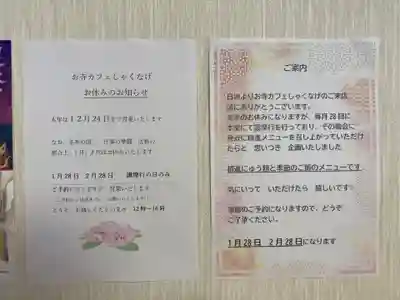 お寺カフェしゃくなげ
お休みのお知らせ
本年は12月24日まで営業いたします
1月28日 2月28日 護摩行の日のみ
12時〜16時
ご案内
日頃よりお寺カフェしゃくなげのご来店
誠にありがとうございます。
冬季のお休みになりますが、毎月28日に
本堂にて護摩行を行っており、その機会に
身近に精進メニューを召し上がっていただけ
たらと 思いつき 企画いたしました
精進にゅう麺と季節のご飯のメニューです
気にいって いただけたら 嬉しいです
事前のご予約になりますので、どうぞ
ご了承ください。
1月28日 2月28日になります